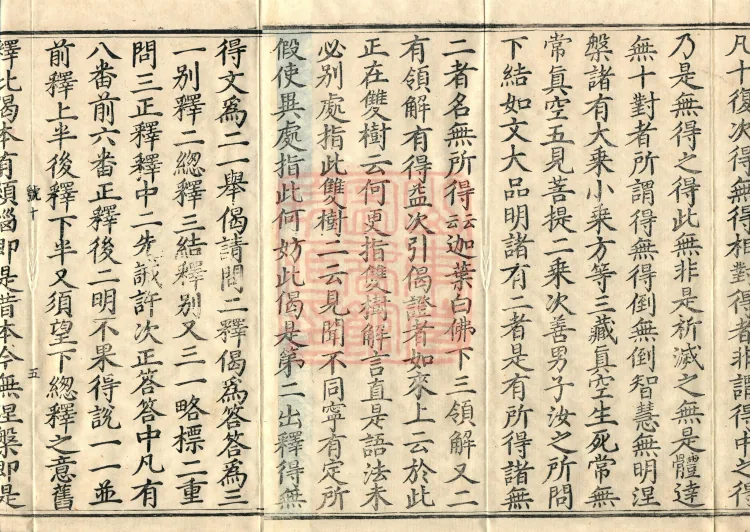 凡十復次得無得相對得者非謂得中之得
乃是無得之得此無非是析滅之無是體達
無十對者所謂得無得倒無倒智慧無明涅
槃諸有大乘小乘方等三藏真空生死常無
常真空五見菩提二乘次善男子汝之所問
下結如文大品明諸有二者是有所得諸無
二者名無所得云云迦葉白佛下三領解又二
有領解有得益次引偈證者如來上云於此
正在雙樹云何更指雙樹解言直是語法未
必別處指此雙樹二云見聞不同寧有定所
假使異處指此何妨此偈是第二出釋得無
得文為二一舉偈請問二釋偈為答答為三
一別釋二總釋三結釋別又三一略標二重
問三正釋釋中二先誡許次正答答中凡有
八番前六番正釋後二明不果得說一一並
前釋上半後釋下半又須望下總釋之意舊
號十 五
釋此偈本有煩惱即是昔本今無涅槃即是